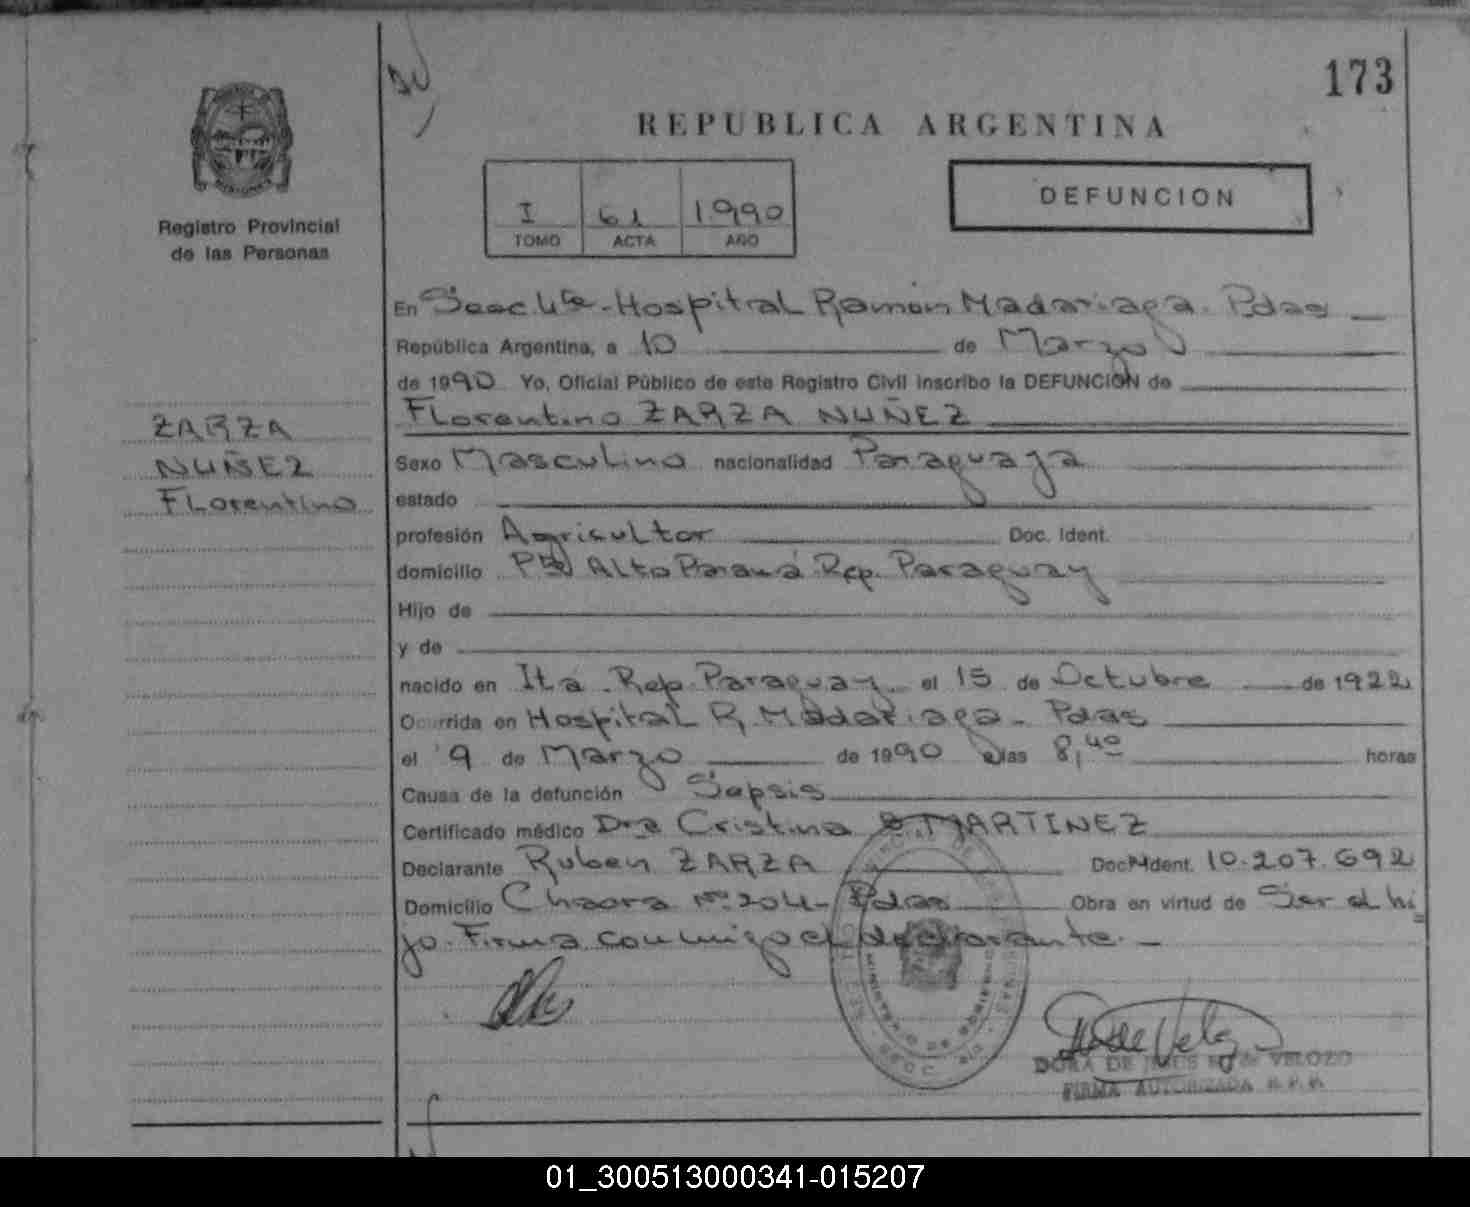 173
REPUBLICA ARGENTINA
Registro Provincial
de las Personas
I 61 1990
TOMO ACTA AÑO
DEFUNCION
ZARZA
NUÑEZ
Florentino
En Secc. 4ta - Hospital Ramón Madariaga. Pdas
República Argentina, a 10 de Marzo
de 1990 Yo, Oficial Público de este Registro Civil inscribo la DEFUNCIÓN de
Florentino ZARZA NUÑEZ
Sexo Masculino nacionalidad Paraguaya
estado
profesión Agricultor Doc. Ident.
domicilio Alto Paraná Rep. Paraguay
Hijo de
y de
nacido en Itá. Rep. Paraguay el 15 de Octubre de 1922
Ocurrida en Hospital R. Madariaga - Pdas
el 9 de Marzo de 1990 a las 8,40 horas
Causa de la defunción Sepsis
Certificado médico Dra Cristina MARTINEZ
Declarante Ruben ZARZA Doc. Ident. 10.207.692
Domicilio Chacra Nº 204 - Pdas Obra en virtud de Ser el hi
jo. Firma conmigo el declarante. -
DORA DE VELOZO
FIRMA AUTORIZADA R.P.P.
01_300513000341-015207